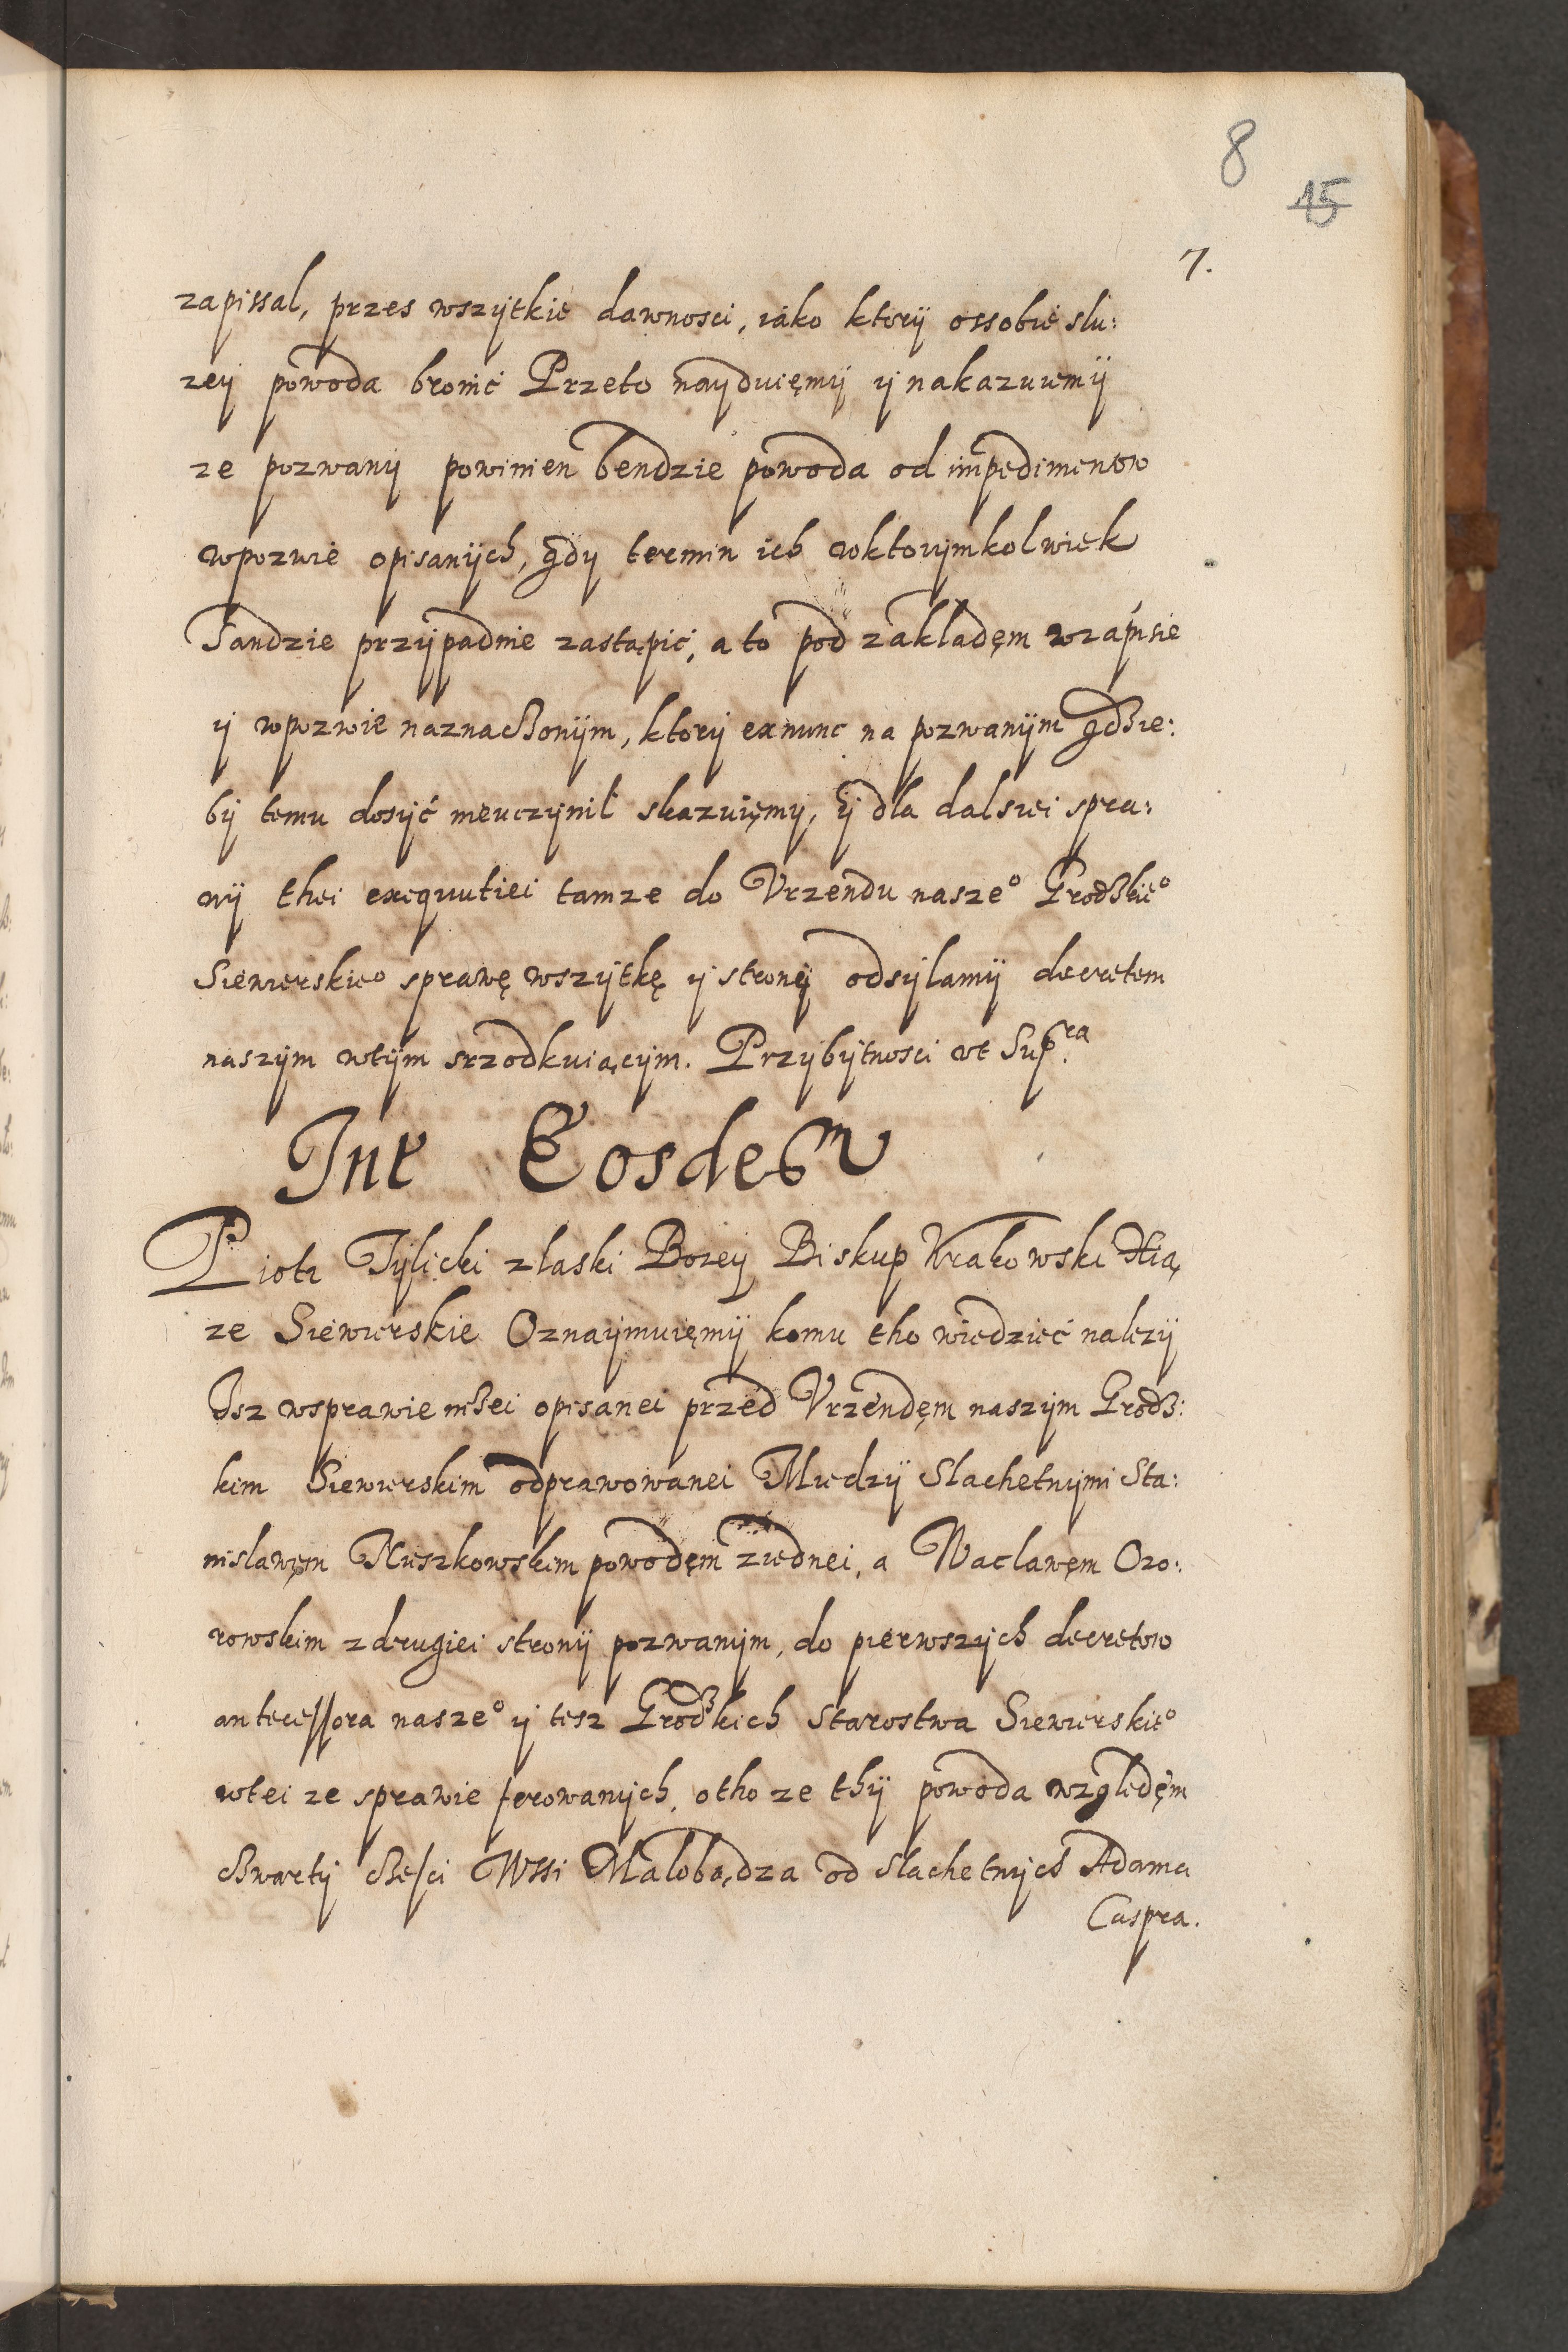 8
15
7.
zapissal, przes wszytkie dawnosci, iako ktorÿ ossobie slu:
zeÿ powoda bronić Przeto naÿduięmÿ ÿ nakazuiemÿ
ze pozwanÿ powinien bendzie powoda od impedimentow
wpozwie opisanÿch, gdÿ termin ich wktorÿmkolwiek
Sandzie przÿpadnie zastąpić, a to pod zakladęm wzapisie
ÿ wpozwie naznaczonÿm, ktorÿ exnunc na pozwanÿm gdzie:
bÿ temu dosÿć nieuczÿnił skazuięmy, ÿ dla dalszei spra:
wÿ thei exequutiei tamze do Vrzendu nasze° Grodzkie°
Siewierskie° sprawę wszÿtkę ÿ stronÿ odsÿlamÿ decretem
naszÿm wtÿm srzodkuiącÿm. Przÿbÿtnosci vt Supra.
Int Eosdem
Piotr Tÿlicki zlaski Bozeÿ Biskup Krakowski Xią
ze Siewierskie Oznaÿmuięmÿ komu tho wiedzieć nalezÿ
Isz wsprawie nizei opisanei przed Vrzendęm naszÿm Grodz:
kim Siewierskim odprawowanei Miedzÿ Slachetnÿmi Sta:
nislawęm Kuszkowskim powodęm ziednei, a Waclawęm Ozo:
rowskim zdrugiei stronÿ pozwanÿm, do pierwszÿch decretow
antecessora nasze° ÿ tesz Grodzkich Starostwa Siewierskie°
wtei ze sprawie ferowanÿch, otho ze thÿ powoda względęm
czwartÿ częsci Wssi Malobądza od slachetnÿch Adama
Caspra.